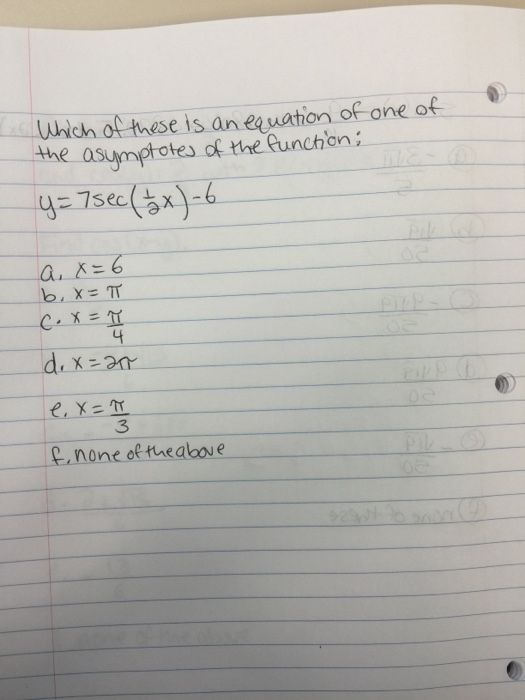 Which of these is an equation of one of
the asymptotes of the function:
y = 7sec(½x) - 6
a. x = 6
b. x = π
c. x = π/4
d. x = 2π
e. x = π/3
f. none of the above